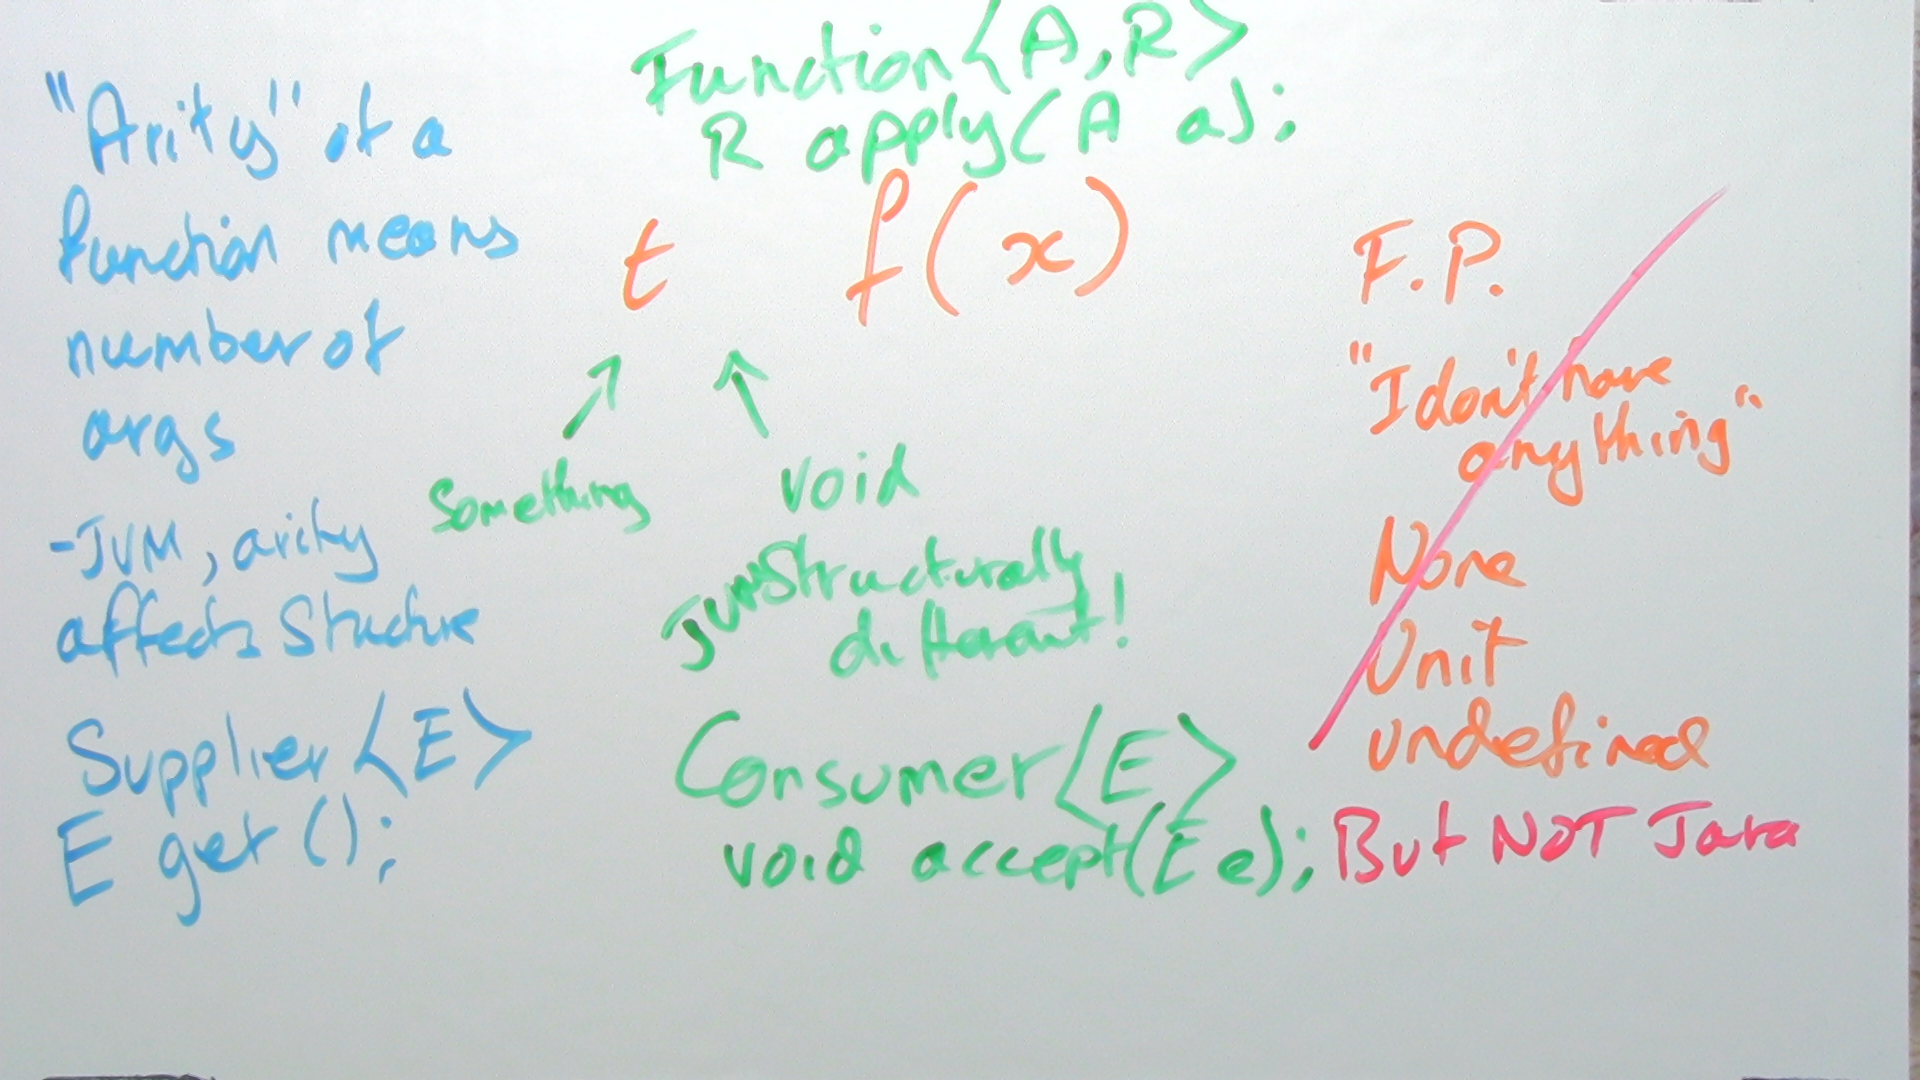 "Arity" of a
function means
number of
args
-JVM, arity
affects structure
Supplier<E>
E get();
Function<A,R>
R apply(A a);
t f(x)
Something
void
JVM Structurally
different!
Consumer<E>
void accept(E e);
F.P.
"I don't have
anything"
None
Unit
undefined
But NOT Java